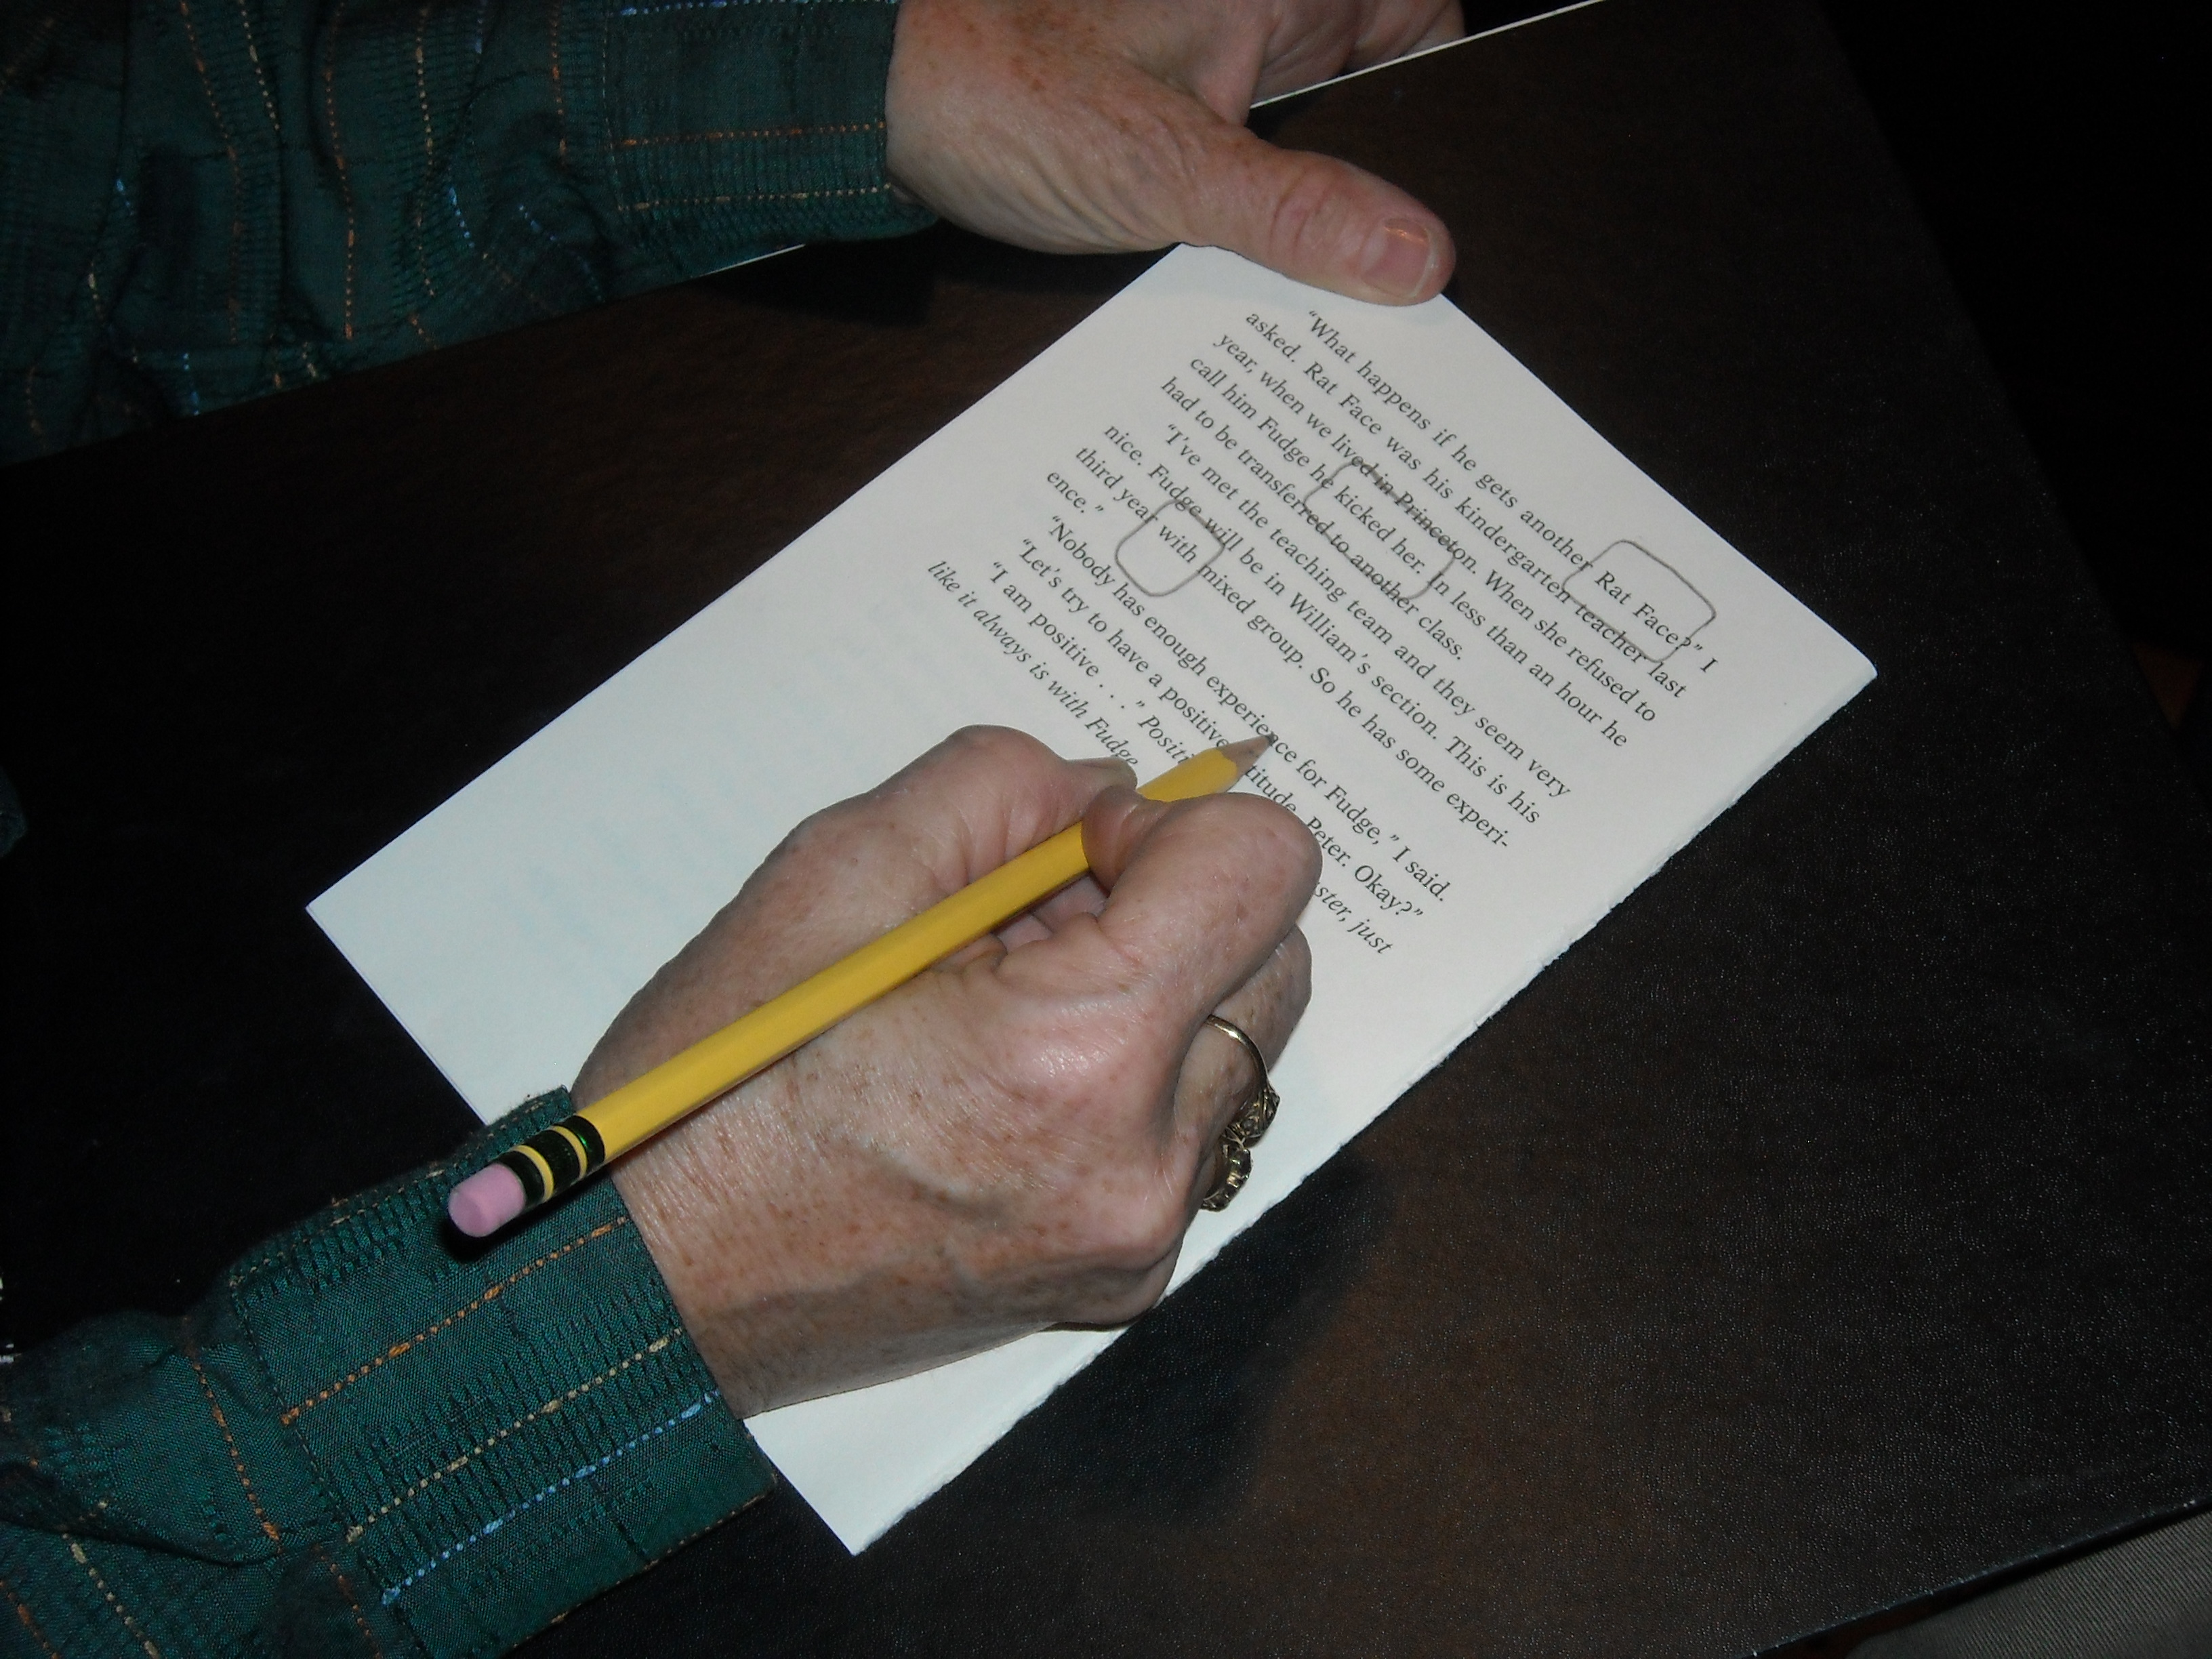 “What happens if he gets another Rat Face?” I
asked. Rat Face was his kindergarten teacher last
year, when we lived in Princeton. When she refused to
call him Fudge he kicked her. In less than an hour he
had to be transferred to another class.
“I’ve met the teaching team and they seem very
nice. Fudge will be in William’s section. This is his
third year with mixed group. So he has some experi-
ence.”
“Nobody has enough experience for Fudge,” I said.
“Let’s try to have a positive titude, Peter. Okay?”
“I am positive . . .” Positi ster, just
like it always is with Fudge